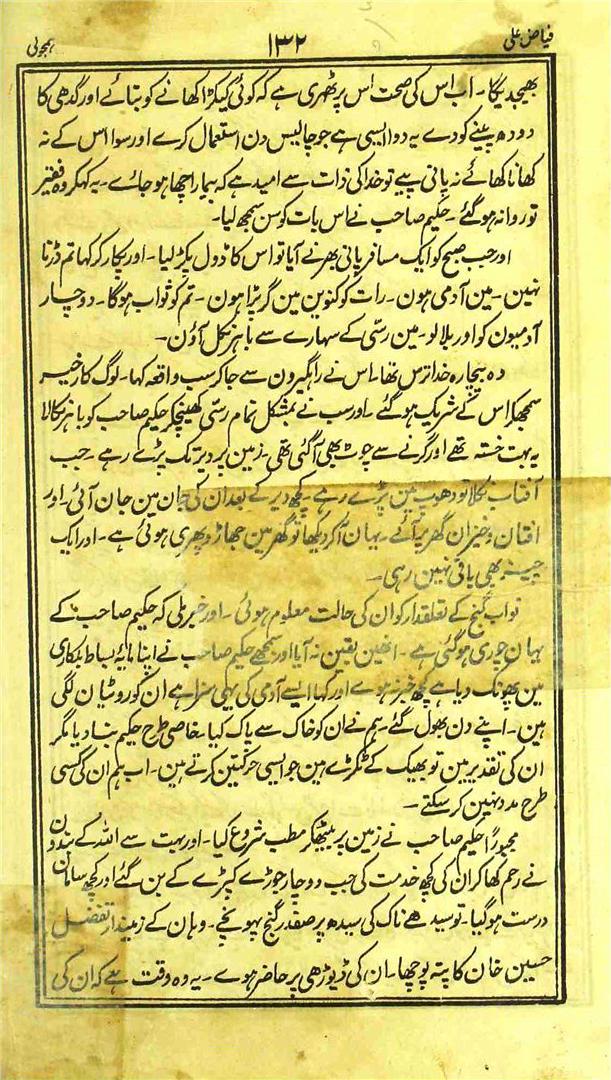 فیاض علی ۱۳۲ ہمجولی
بھیجدیگا۔ اب اس کی صحت اس پر ٹھہری ہے کہ کوئی کیکڑا کھانے کو بتائے اور گدھی کا
دودھ پینے کو دے یہ دوا ایسی ہے جو چالیس دن استعمال کرے اور سوا اس کے نہ
کھانا کھائے نہ پانی پیے تو خدا کی ذات سے امید ہے کہ بیمار اچھا ہو جائے۔ یہ کہکر وہ فقیر
تو روانہ ہو گئے۔ حکیم صاحب نے اس بات کو سن سمجھ لیا۔
اور جب صبح کو ایک مسافر پانی بھرنے آیا تو اس کا ڈول پکڑ لیا۔ اور پکار کر کہا تم ڈرنا
نہین۔ مین آدمی ہون۔ رات کو کنوین مین گر پڑا ہون۔ تم کو ثواب ہوگا۔ دو چار
آدمیون کو اور بلا لو۔ مین رسّی کے سہارے سے باہر نکل آؤن۔
وہ بیچارہ خدا ترس تھا۔ اس نے راہگیرون سے جا کر سب واقعہ کہا۔ لوگ کار خیر
سمجھکر اس کے شریک ہو گئے۔ اور سب نے بمشکل تمام رسّی کھینچکر حکیم صاحب کو باہر نکالا
یہ بہت خستہ تھے اور گرنے سے چوٹ بھی آگئی تھی۔ زمین پر دیر تک پڑے رہے۔ جب
آفتاب نکلا تو دھوپ مین پڑے رہے۔ کچھ دیر کے بعد ان کی جان مین جان آئی۔ اور
افتان و خیزان گھر پر آئے۔ یہان آکر دیکھا تو گھر مین جھاڑو پھری ہوئی ہے۔ اور ایک
چیز بھی باقی نہین رہی۔
نواب گنج کے تعلقدار کو ان کی حالت معلوم ہوئی۔ اور خبر ملی کہ حکیم صاحب کے
یہان چوری ہو گئی ہے۔ انھین یقین نہ آیا اور سمجھے حکیم صاحب نے اپنا مایۂ بساط بدکاری
مین پھونک دیا ہے کچھ خبر نہ ہوے اور کہا ایسے آدمی کی یہی سزا ہے ان کو روٹیان لگی
ہین۔ اپنے دن بھول گئے۔ ہم نے ان کو خاک سے پاک کیا۔ خاصی طرح حکیم بنا دیا مگر
ان کی تقدیر مین تو بھیک کے ٹکڑے ہین جو ایسی حرکتین کرتے ہین۔ اب ہم ان کی کسی
طرح مدد نہین کر سکتے۔
مجبوراً حکیم صاحب نے زمین پر بیٹھکر مطب شروع کیا۔ اور بہت سے اللہ کے بندون
نے رحم کھا کر ان کی کچھ خدمت کی جب دو چار جوڑے کپڑے کے بن گئے اور کچھ سامان
درست ہو گیا۔ تو سیدھے ناک کی سیدھ پر صفدر گنج پہونچے۔ وہان کے زمیندار تفضل
حسین خان کا پتہ پوچھا۔ ان کی ڈیوڑھی پر حاضر ہوے۔ یہ وہ وقت ہے کہ ان کی